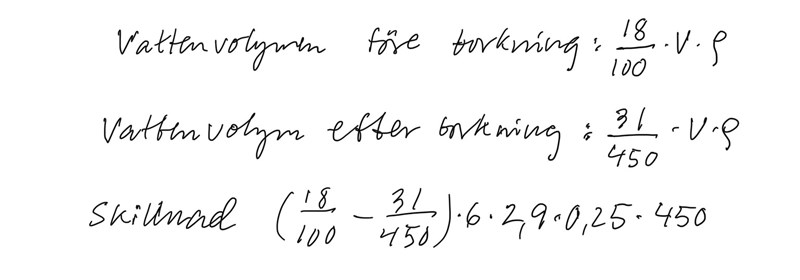 Vattenvolymen före torkning : 18/100 · V · ρ
Vattenvolym efter torkning : 31/450 · V · ρ
Skillnad (18/100 − 31/450) · 6 · 2,9 · 0,25 · 450